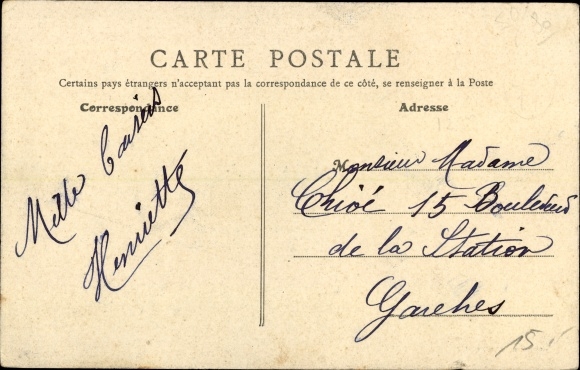 CARTE POSTALE
Certains pays étrangers n'acceptant pas la correspondance de ce côté, se renseigner à la Poste
Correspondance
Adresse
Mille Baisers
Henriette
Monsieur Madame
Chioé 15 Boulevard
de la Station
Garches
15